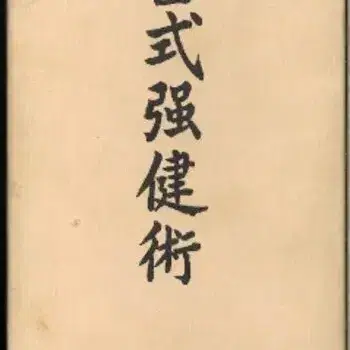 式强健術